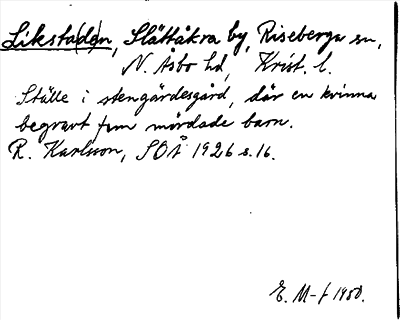 Liksta(d)en, Slättåkra by, Riseberga sn,
N. Åsbo hd, Krist. l.
Ställe i stengärdesgård, där en kvinna
begravt fem mördade barn.
R. Karlsson, SOÅ 1926 s. 16.
E. M-f 1950.